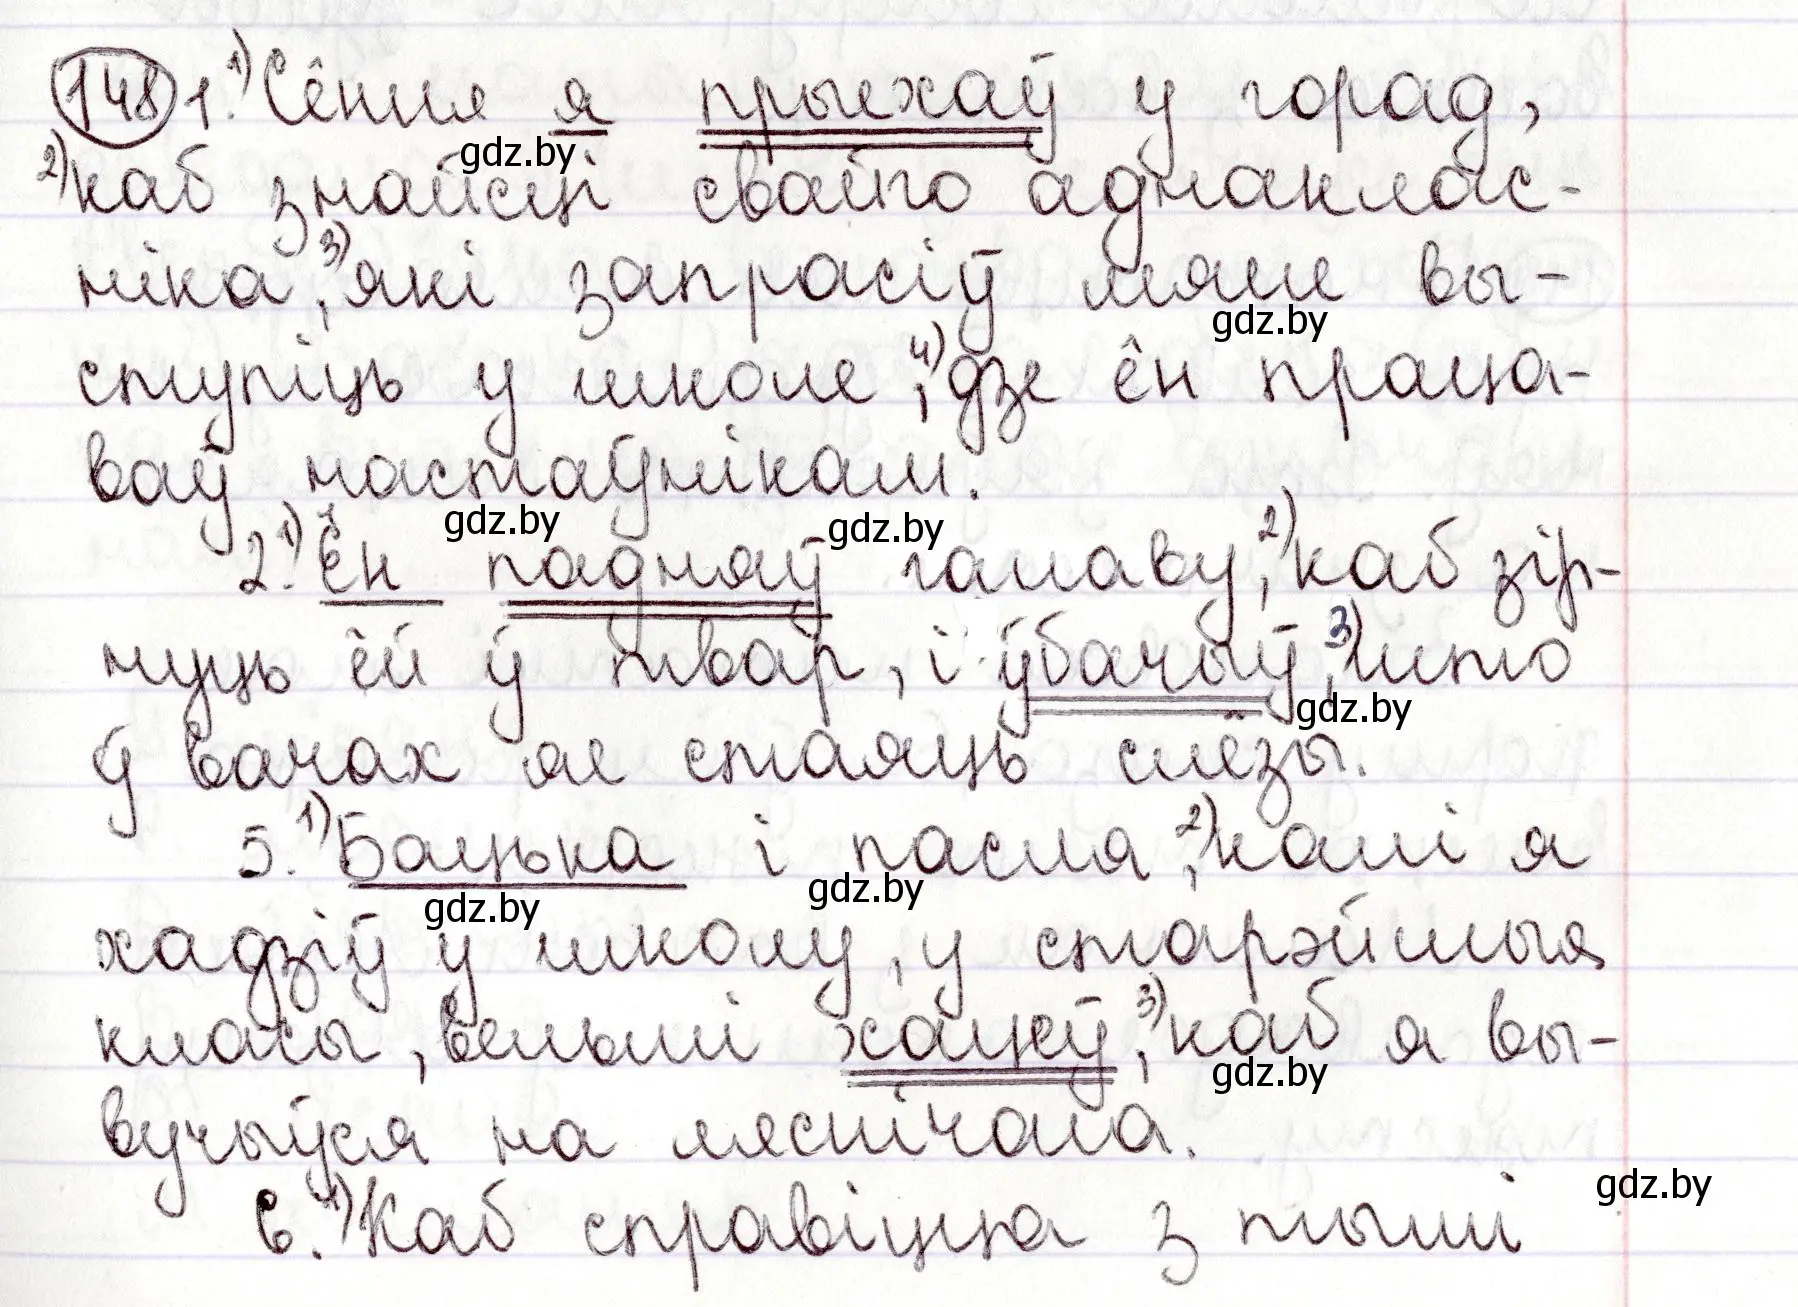 148 1. 1) Сёння я прыехаў у горад,
gdz.by
2) каб знайсці свайго аднаклас-
ніка, 3) які запрасіў мяне вы-
gdz.by
ступіць у школе, 4) дзе ён праца-
ваў настаўнікам.
gdz.by gdz.by
2. 1) Ён падняў галаву, 2) каб зір-
нуць ёй ў твар, і ўбачыў, 3) што
gdz.by
ў вачах яе стаяць слёзы.
5. 1) Бацька і пасля, 2) калі я
gdz.by gdz.by
хадзіў у школу, у старэйшыя
класы, вельмі хацеў, 3) каб я вы-
gdz.by
вучыўся на ляснічага.
gdz.by
6. 1) Каб справіцца з тымі